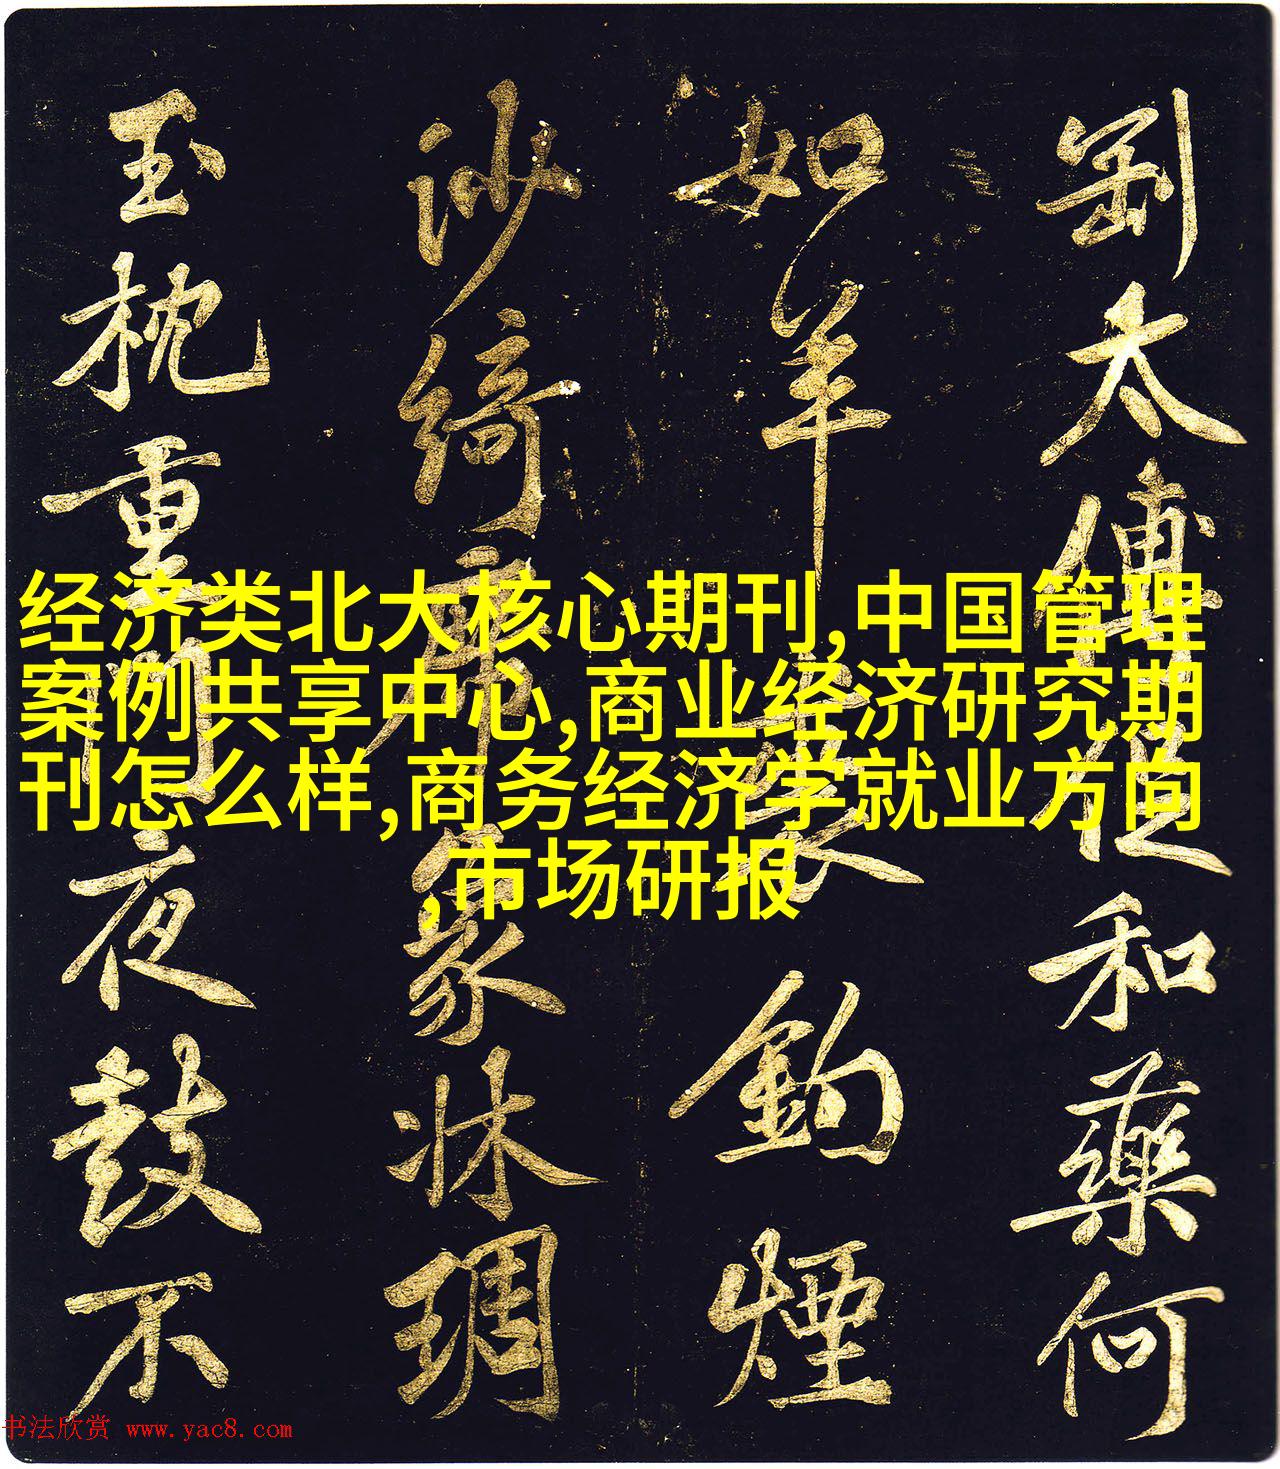 太傅
和藥何
如羊
鈎煙
沙綺席象牀琱
玉枕重門夜鼓不
经济类北大核心期刊,中国管理
案例共享中心,商业经济研究期
刊怎么样,商务经济学就业方向
,市场研报
书法欣赏 www.yac8.com